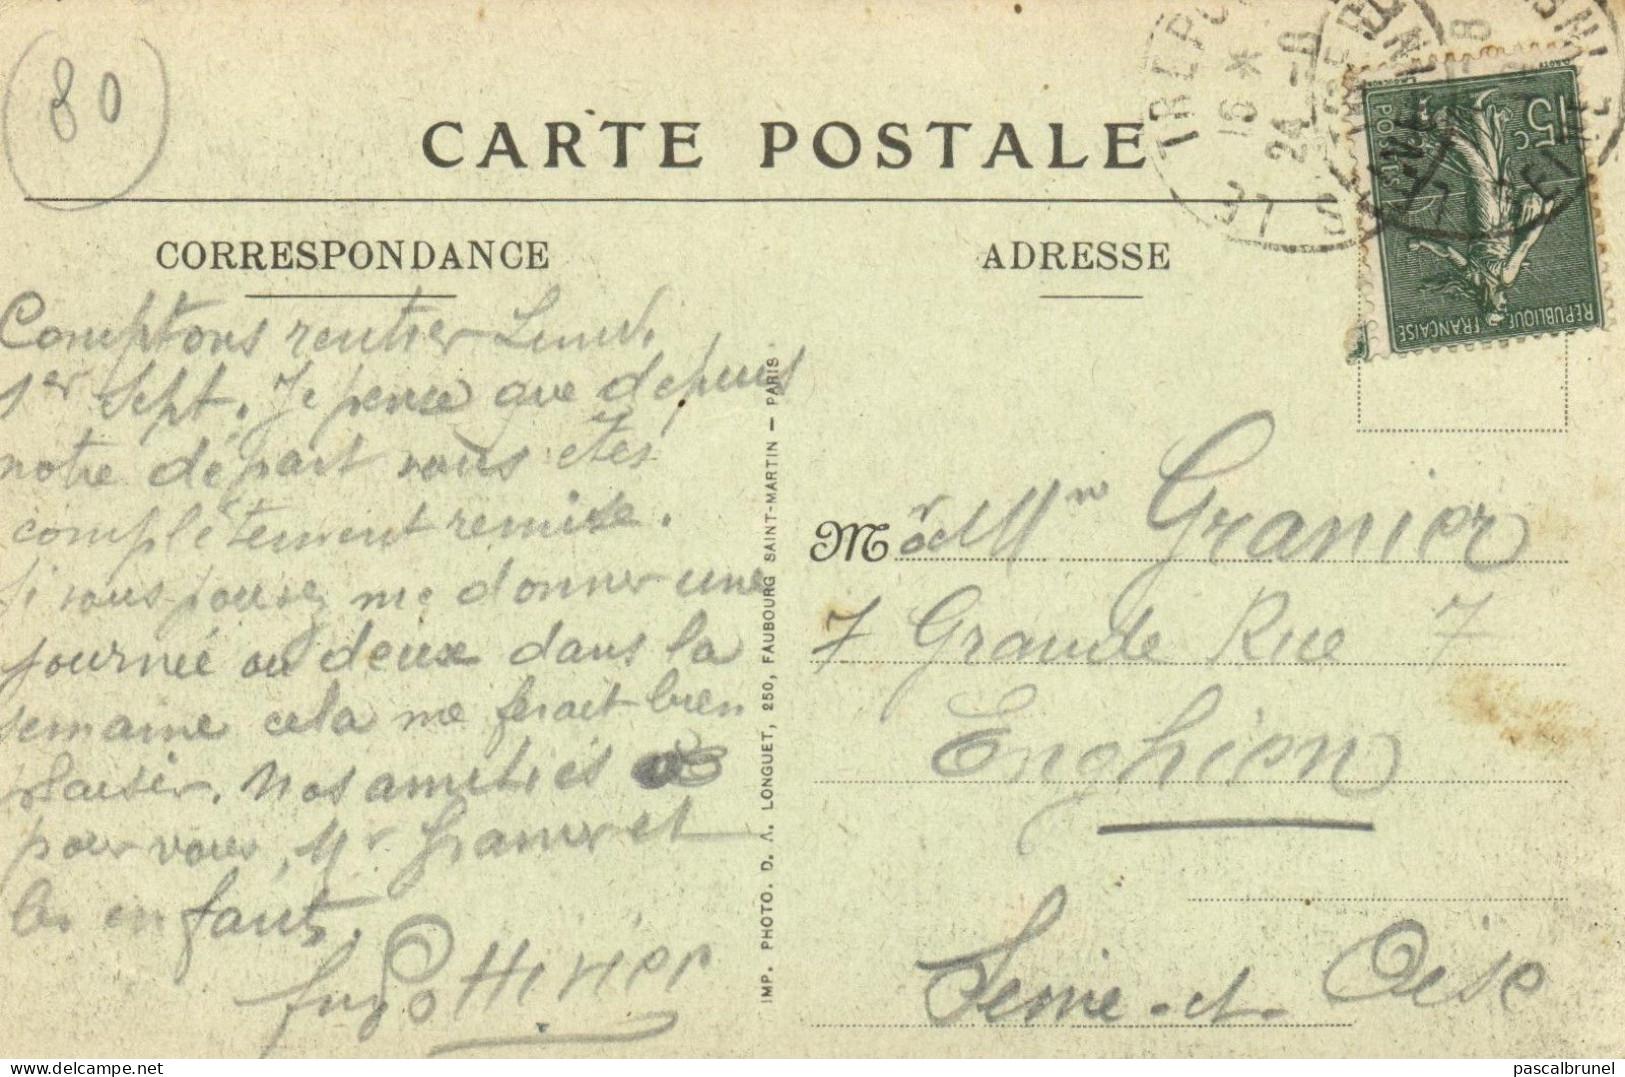 80
CARTE POSTALE
CORRESPONDANCE
ADRESSE
LE TREPORT
16 * 24 -8
SEINE INFRE
15c
POSTES
REPUBLIQUE FRANÇAISE
Comptons rentrer Lundi
1er Sept. Je pense que depuis
notre départ vous êtes
complètement remise.
Si vous pouvez me donner une
journée ou deux dans la
semaine cela me ferait bien
plaisir. Nos amitiés
pour vous, Mr Granier et
les enfants.
Ottivier
Mr & Mme Granier
7 Grande Rue 7
Enghien
Seine-et-Oise
IMP. PHOTO. D. A. LONGUET, 250, FAUBOURG SAINT-MARTIN — PARIS
pascalbrunel